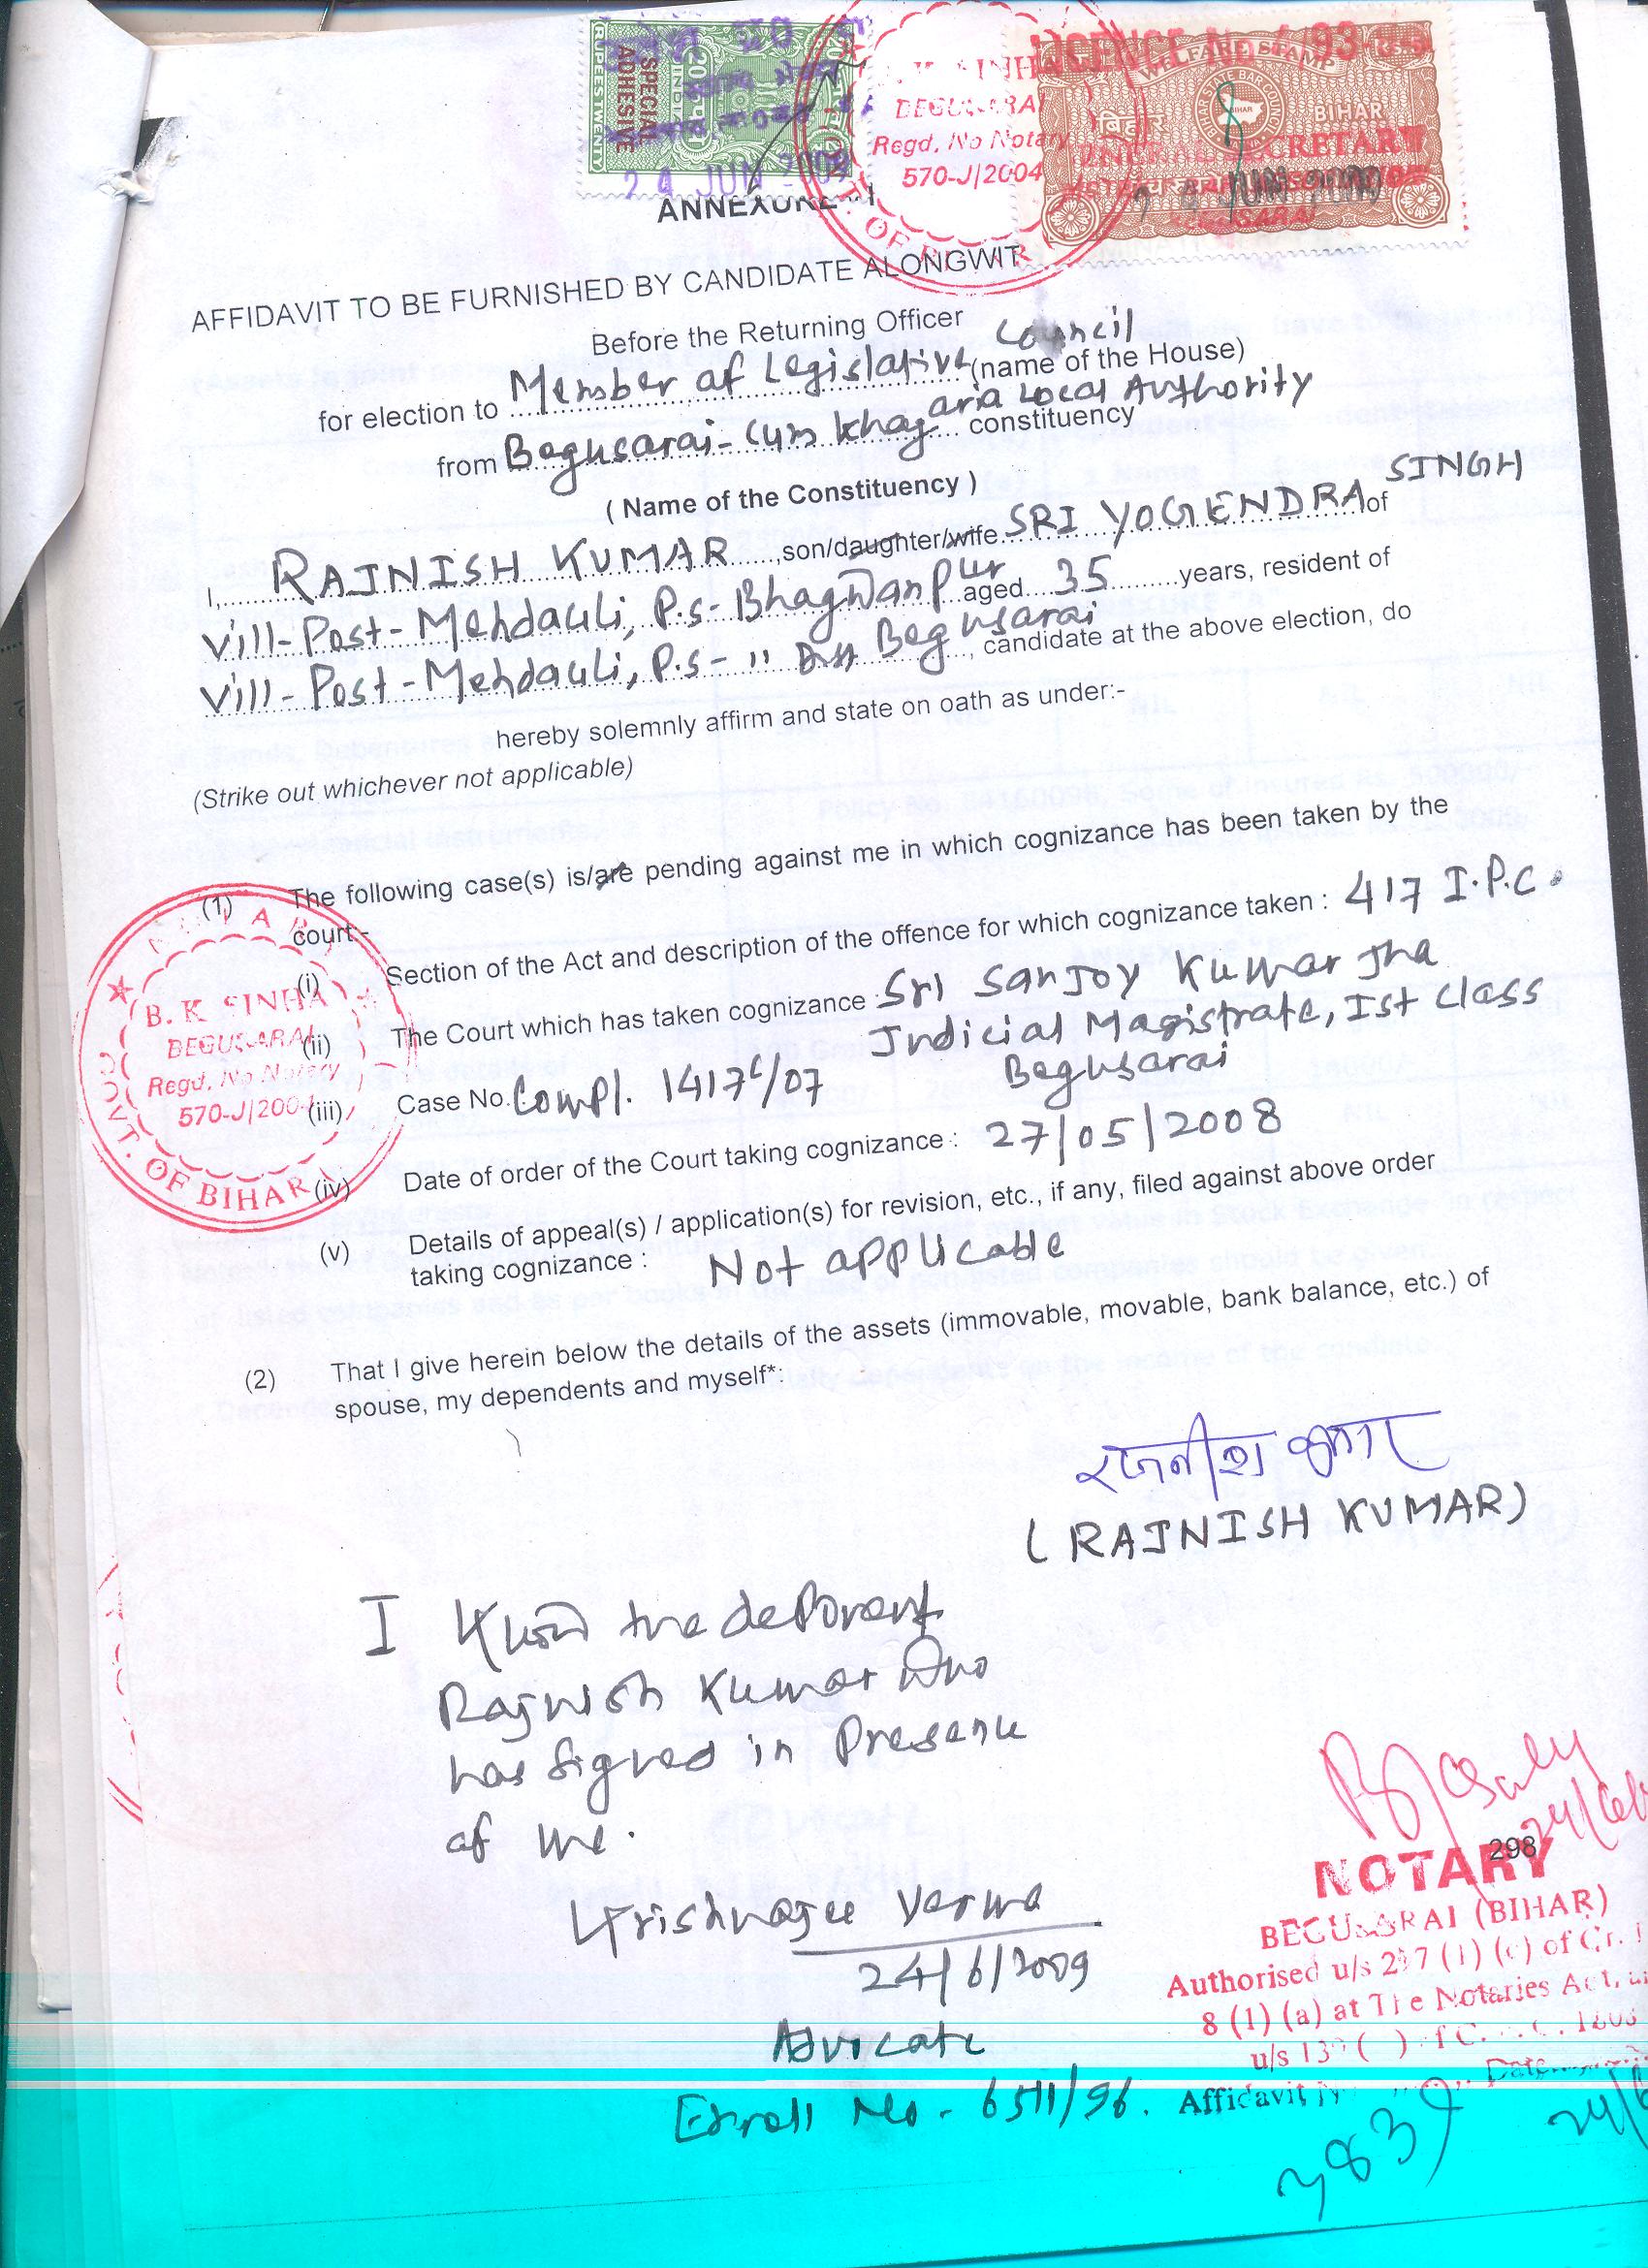 RUPEES TWENTY
SPECIAL
ADHESIVE
INDIA
24 JUN 2009
B. K. SINHA
BEGUSARAI
Regd. No Notary
570-J/2004
GOVT. OF BIHAR
LICENCE No. 4/93
WELFARE STAMP
बिहार
BIHAR
SECRETARY
JUN 2009
BEGUSARAI
ANNEXURE - I
AFFIDAVIT TO BE FURNISHED BY CANDIDATE ALONGWIT
Before the Returning Officer
for election to Member of Legislative Council (name of the House)
from Begusarai-Cum Khagaria Local Authority constituency
( Name of the Constituency )
I, RAJNISH KUMAR son/daughter/wife SRI YOGENDRA SINGH of
Vill-Post-Mehdauli, P.s-Bhagwanpur aged 35 years, resident of
Vill-Post-Mehdauli, P.s- " Dist Begusarai, candidate at the above election, do
hereby solemnly affirm and state on oath as under:-
(Strike out whichever not applicable)
(1) The following case(s) is/are pending against me in which cognizance has been taken by the
court:-
(i) Section of the Act and description of the offence for which cognizance taken : 417 I.P.C.
(ii) The Court which has taken cognizance : Sri Sanjoy Kumar Jha
Judicial Magistrate, Ist Class
Begusarai
(iii) Case No. Compl. 1417c/07
(iv) Date of order of the Court taking cognizance : 27/05/2008
(v) Details of appeal(s) / application(s) for revision, etc., if any, filed against above order
taking cognizance : Not applicable
NOTARY
B. K. SINHA
BEGUSARAI
Regd. No Notary
570-J/2004
GOVT. OF BIHAR
(2) That I give herein below the details of the assets (immovable, movable, bank balance, etc.) of
spouse, my dependents and myself*:
रजनीश कुमार
(RAJNISH KUMAR)
I Know the deponent
Rajnish Kumar Who
has signed in Presence
of me.
Krishnajee Verma
24/6/2009
Advocate
Enroll No - 6511/96.
298
NOTARY
BEGUSARAI (BIHAR)
Authorised u/s 297 (1) (c) of Cr.
8 (1) (a) at The Notaries Act,
u/s 139
Affidavit No. Date